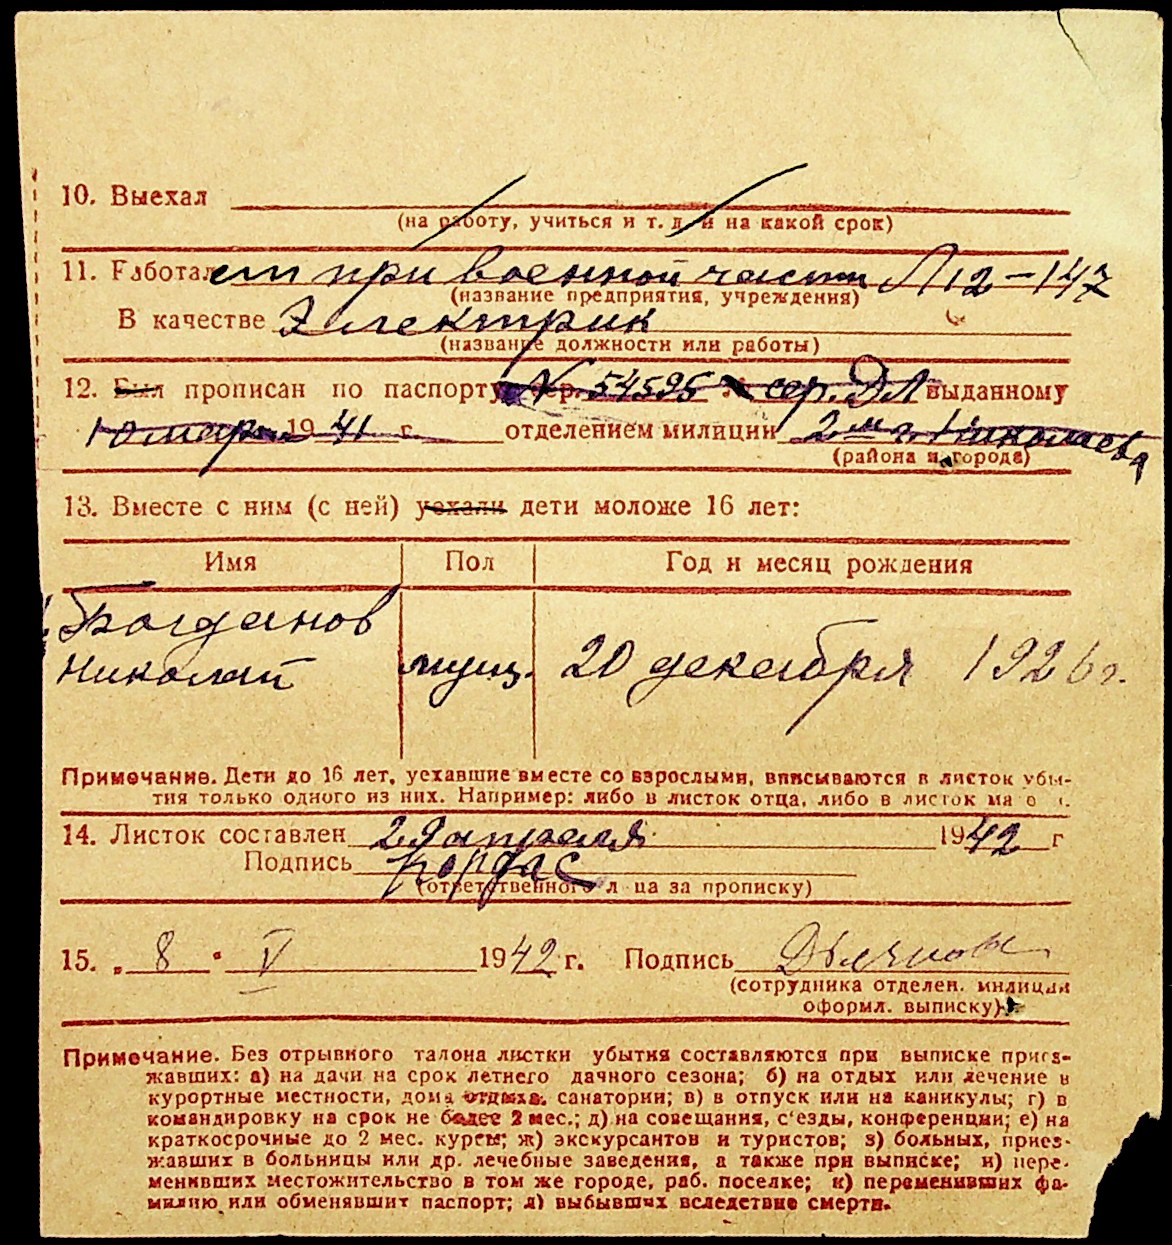 10. Выехал
(на работу, учиться и т. д. и на какой срок)
11. Работал ет при военной части Л12-147
(название предприятия, учреждения)
В качестве Электрик
(название должности или работы)
12. Был прописан по паспорту сер. № 54595 № сер. ДЛ выданному
10 мар. 1941 г. отделением милиции 2 м г. Николаева
(района и города)
13. Вместе с ним (с ней) уехали дети моложе 16 лет:
Имя Пол Год и месяц рождения
Богданов
Николай мущ. 20 декабря 1926 г.
Примечание. Дети до 16 лет, уехавшие вместе со взрослыми, вписываются в листок убы-
тия только одного из них. Например: либо в листок отца, либо в листок ма
14. Листок составлен 29 апреля 1942 г
Подпись Кордас
(ответственного л ца за прописку)
15. „ 8 " V 1942 г. Подпись
(сотрудника отделен. милиции
оформл. выписку)
Примечание. Без отрывного талона листки убытия составляются при выписке приез-
жавших: а) на дачи на срок летнего дачного сезона; б) на отдых или лечение в
курортные местности, дома отдыха, санатории; в) в отпуск или на каникулы; г) в
командировку на срок не более 2 мес.; д) на совещания, с'езды, конференции; е) на
краткосрочные до 2 мес. курсы; ж) экскурсантов и туристов; з) больных, приез-
жавших в больницы или др. лечебные заведения, а также при выписке; и) пере-
менивших местожительство в том же городе, раб. поселке; к) переменивших фа-
милию или обменявших паспорт; л) выбывших вследствие смерти.